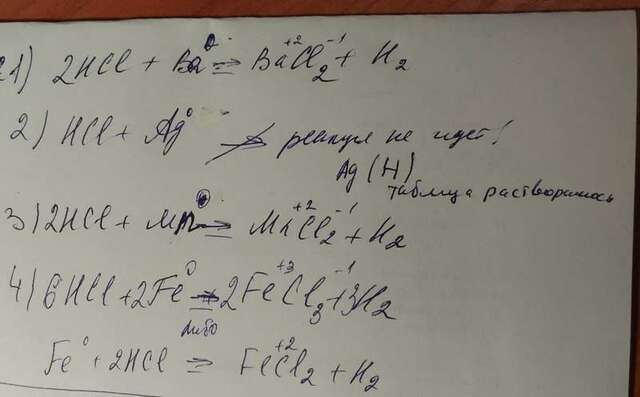 1) 2HCl + Ba⁰ = Ba⁺²Cl₂⁻¹ + H₂
2) HCl + Ag⁰ ↛ реакция не идет!
Ag (H)
таблица растворимось
3) 2HCl + Mn⁰ = Mn⁺²Cl₂⁻¹ + H₂
4) 6HCl + 2Fe⁰ → 2Fe⁺³Cl₃⁻¹ + 3H₂
либо
Fe⁰ + 2HCl = Fe⁺²Cl₂ + H₂